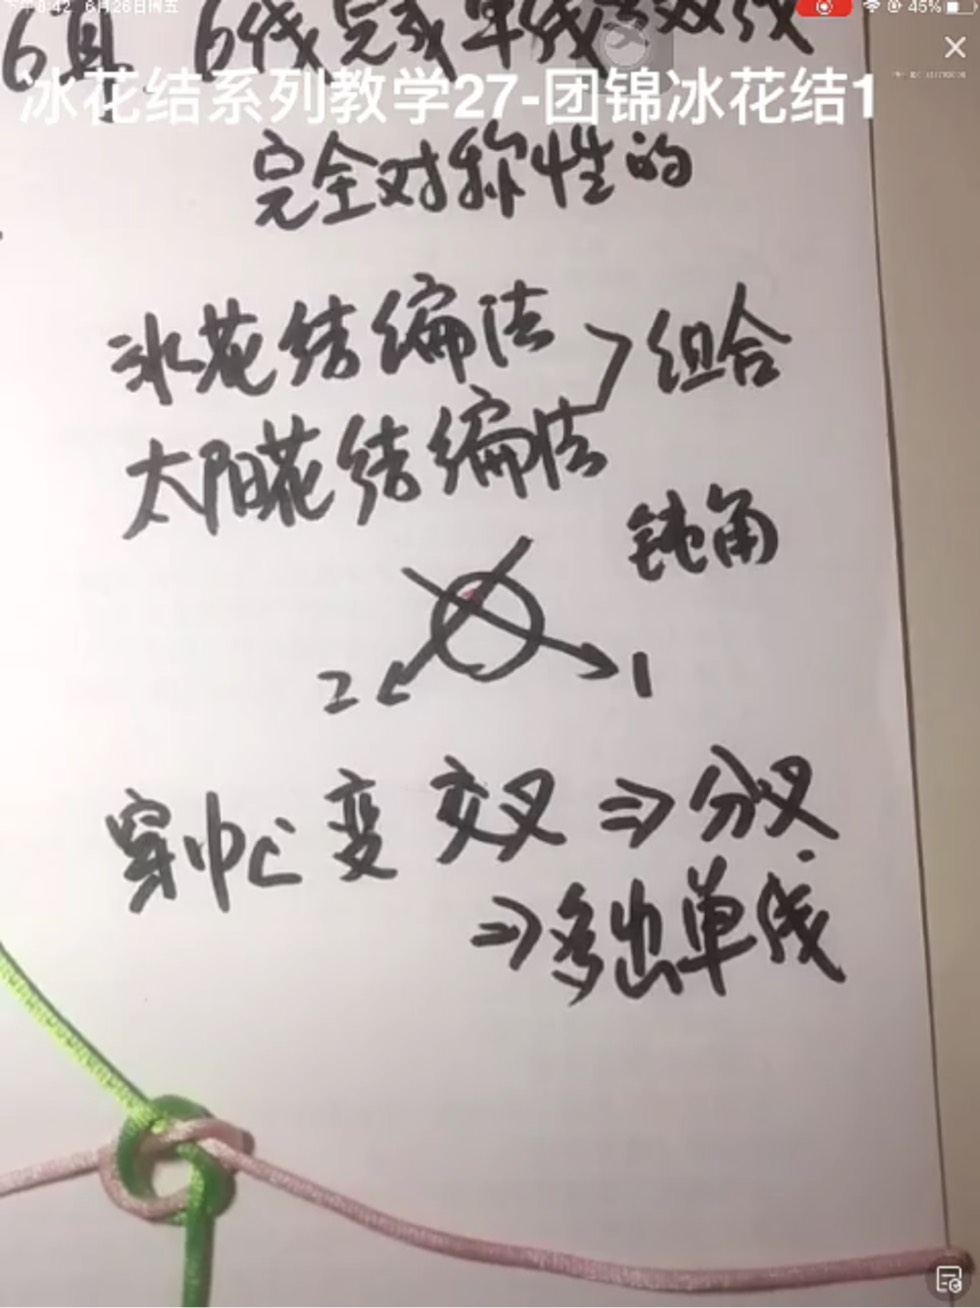 8:42 6月26日周五
45%
6耳 6线完成单线变双线
冰花结系列教学27-团锦冰花结1
完全对称性的
冰花结编法
组合
太阳花结编法
钝角
2
1
穿忙变交叉⇒分叉
⇒多出单线